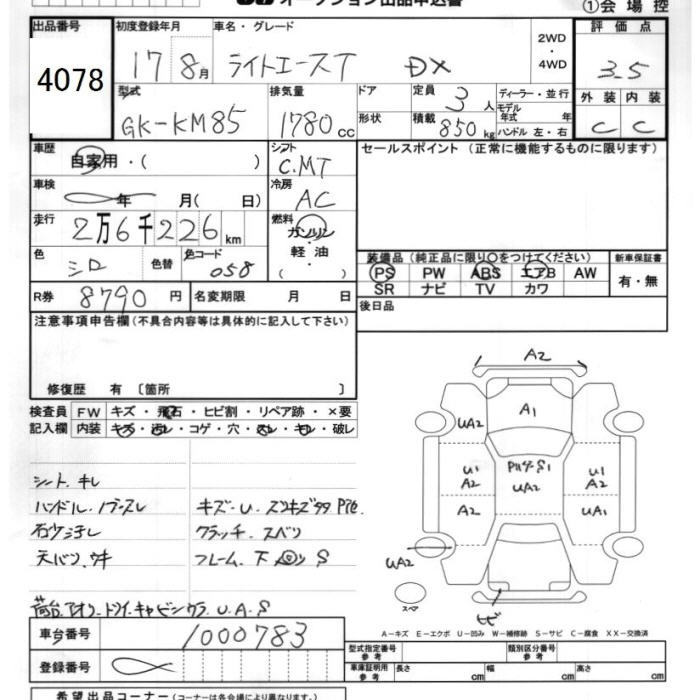 オークション出品申込書
①会場控
出品番号 4078
初度登録年月 17 8月
車名・グレード ライトエースT DX
2WD・4WD
評価点 3.5
外装 C 内装 C
型式 GK-KM85
排気量 1780cc
ドア
形状
定員 3人
積載 850kg
ディーラー・並行
モデル年式 年
ハンドル 左・右
車歴 自家用・( )
シフト C.MT
セールスポイント(正常に機能するものに限ります)
車検 年 月( 日)
冷房 AC
走行 2万6千226km
燃料 ガソリン 軽油 ( )
色 シロ 色替
色コード 058
装備品(純正品に限り○をつけてください)
新車保証書 有・無
PS PW ABS エアB AW
SR ナビ TV カワ
R券 8790円
名変期限 月 日
後日品
注意事項申告欄(不具合内容等は具体的に記入して下さい)
修復歴 有〔箇所 〕
検査員記入欄
FW キズ・飛石・ヒビ割・リペア跡・×要
内装 キズ・汚レ・コゲ・穴・スレ・キレ・破レ
シート.キレ
ハンドル.ノブスレ
キズ・U.スリキズタタ
クラッチ.スベリ
天バリ.ウキ
フレーム.下 S
荷台.アオリ.ドライ.キャビンウラ.U.A.S
A2
A1
UA2
U1
A2
A2
UA2
U1
A2
UA1
UA2
スペア
ヒビ
A-キズ E-エクボ U-凹み W-補修跡 S-サビ C-腐食 XX-交換済
車台番号 1000783
登録番号
型式指定番号 参考
類別区分番号 参考
車庫証明用 参考 長さ cm 幅 cm 高さ cm
希望出品コーナー(コーナーは各会場により異なります)